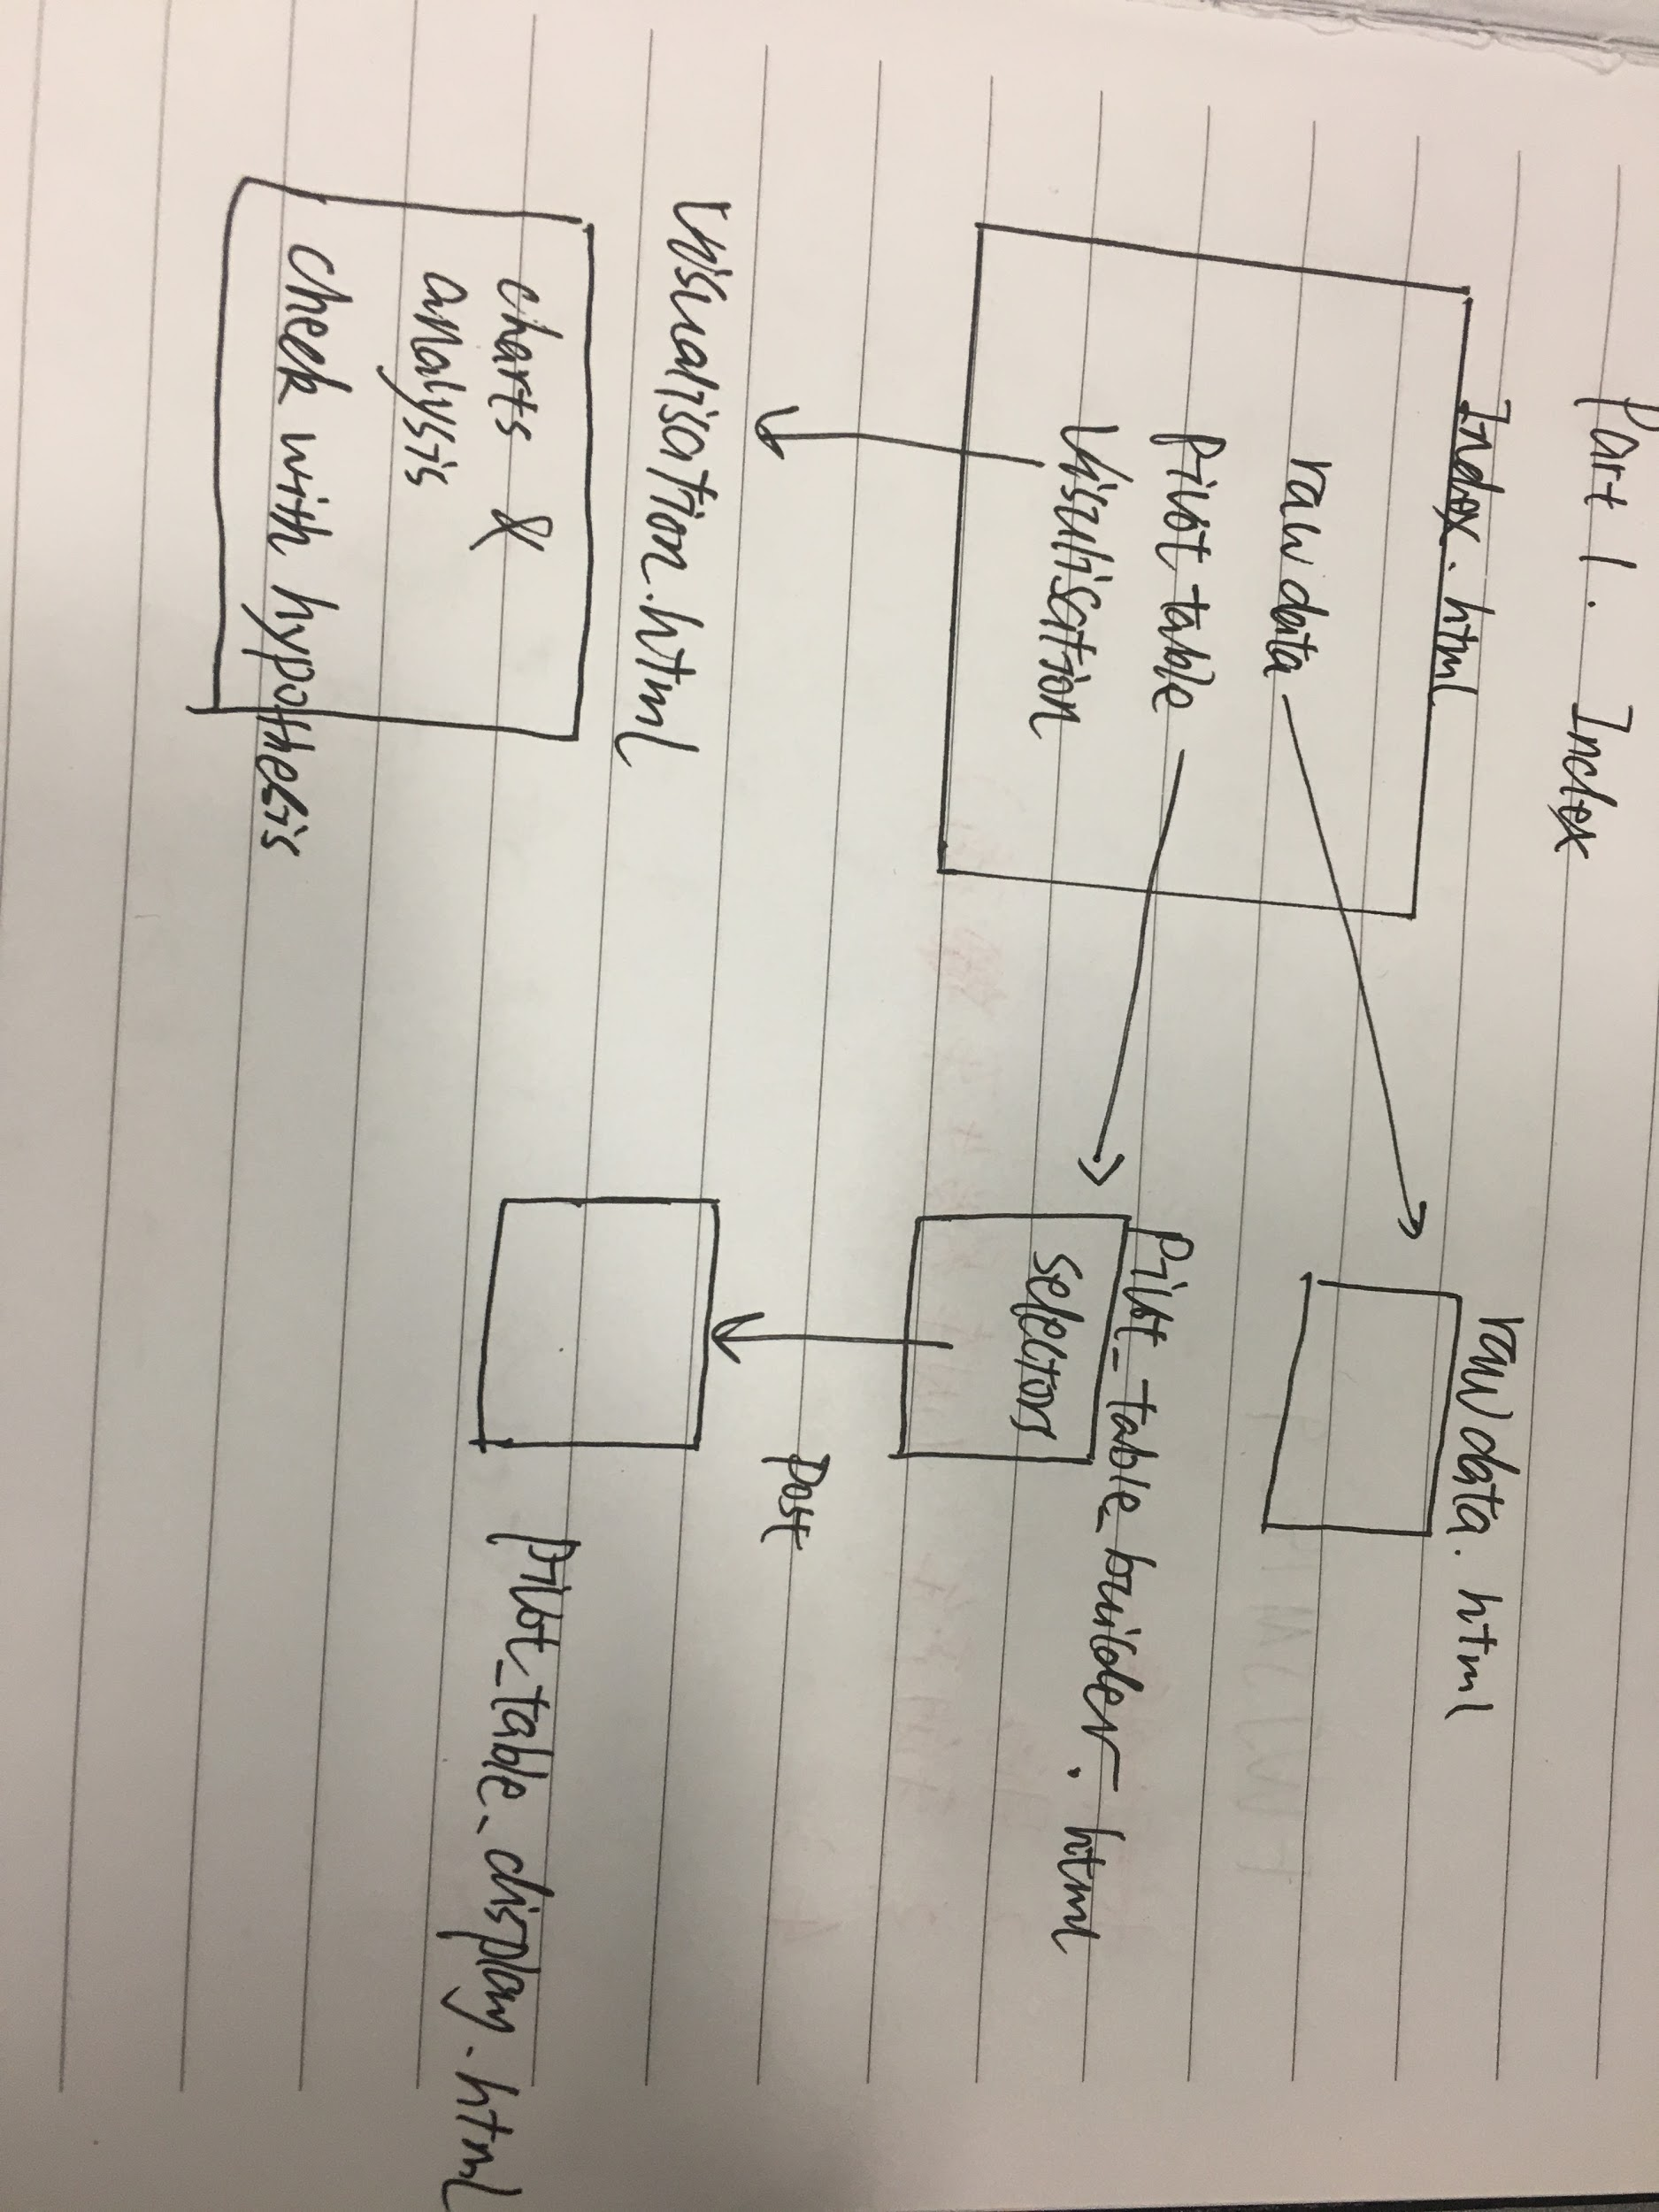 Part 1. Index
Index.html
raw data
pivot table
Visuliscition
rawdata.html
Pivot_table_builder.html
selectors
Post
pivot_table_display.html
Visualisation.html
charts &
analysis
check with hypothesis